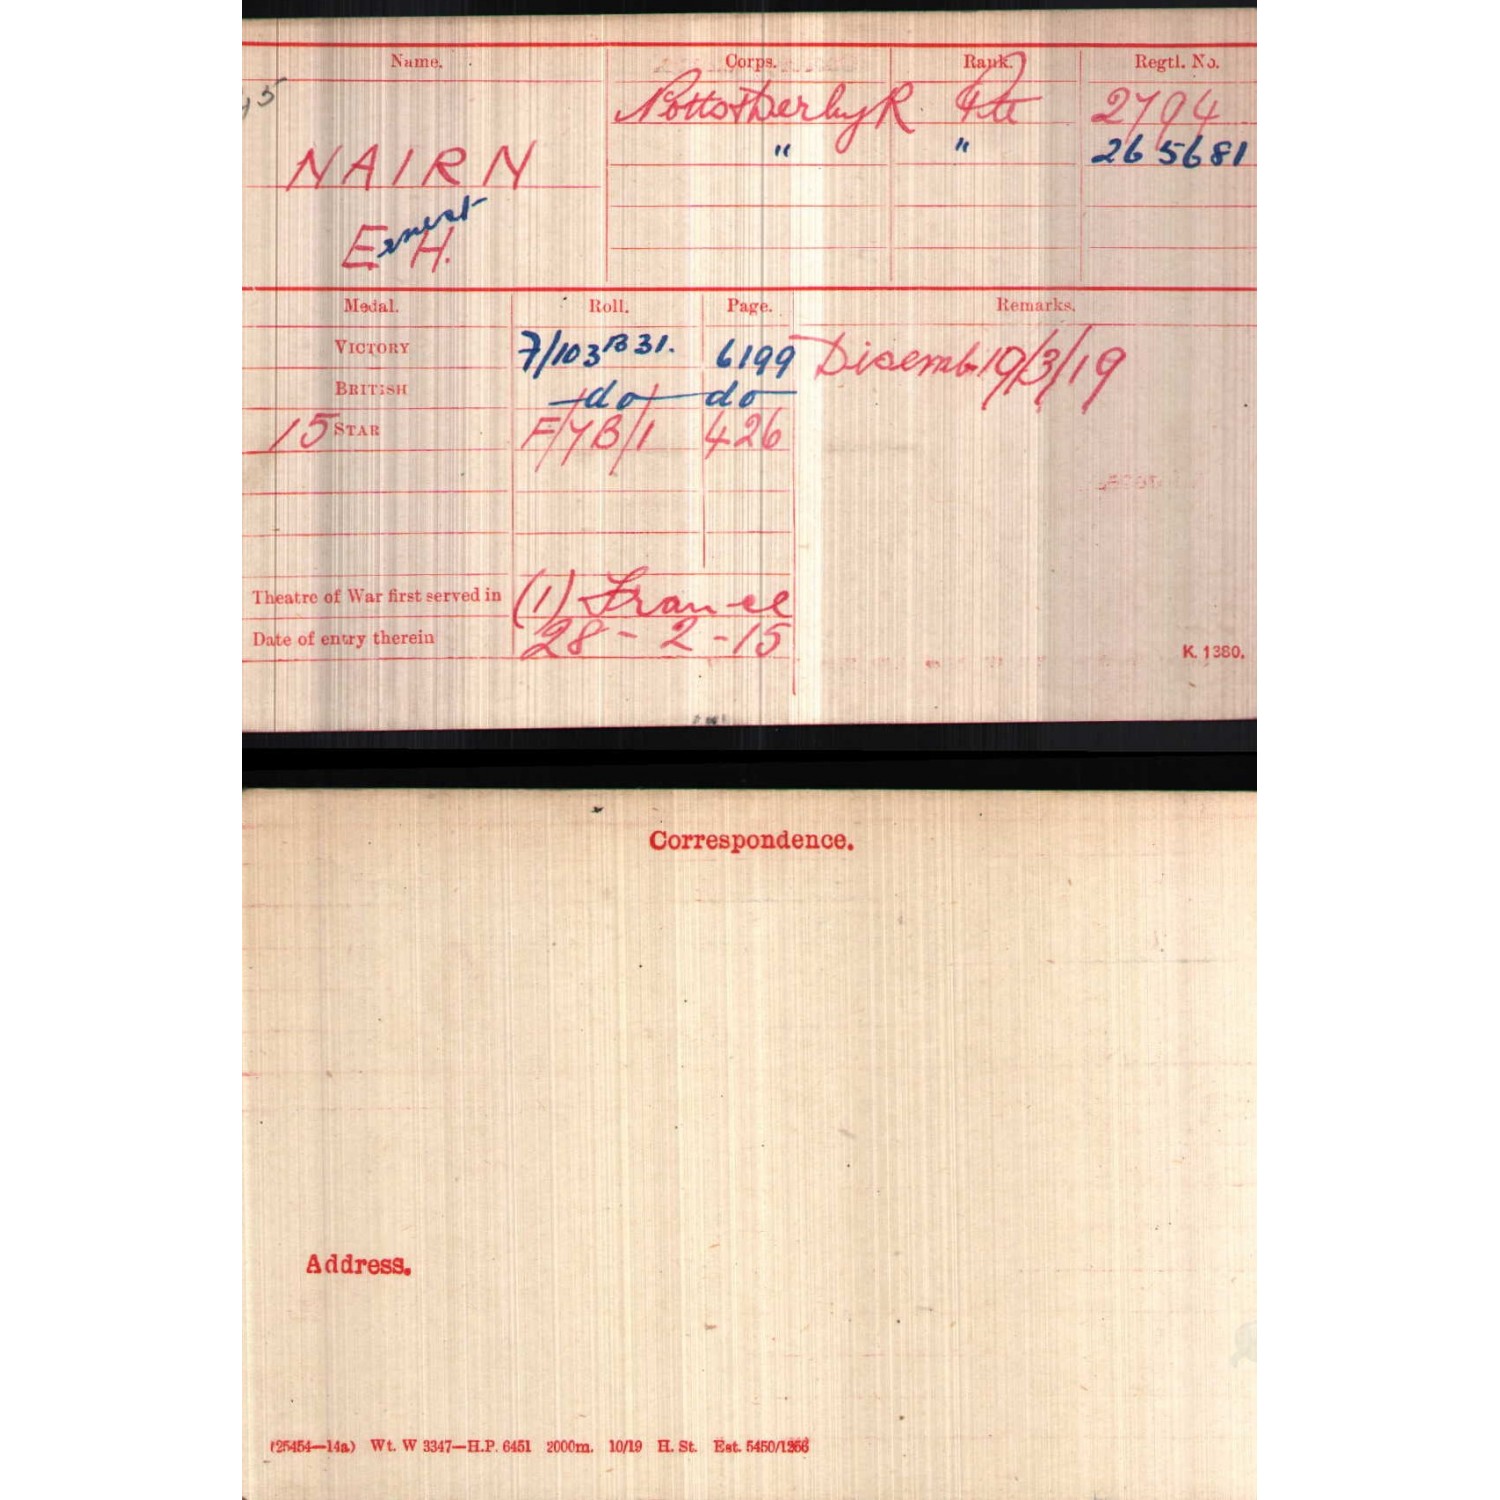 Name. Corps. Rank. Regtl. No.
15
Notts & Derby R Pte 2794
" " 265681
NAIRN
Ernest
E H.
Medal. Roll. Page. Remarks.
VICTORY 7/103 B 31. 6199 Disemb. 19/3/19
BRITISH do do
15 STAR F/7B/1 426
Theatre of War first served in (1) France
Date of entry therein 28-2-15
K. 1380.
Correspondence.
Address.
(25454—14a) Wt. W 3347—H.P. 6451 2000m. 10/19 H. St. Est. 5450/1256